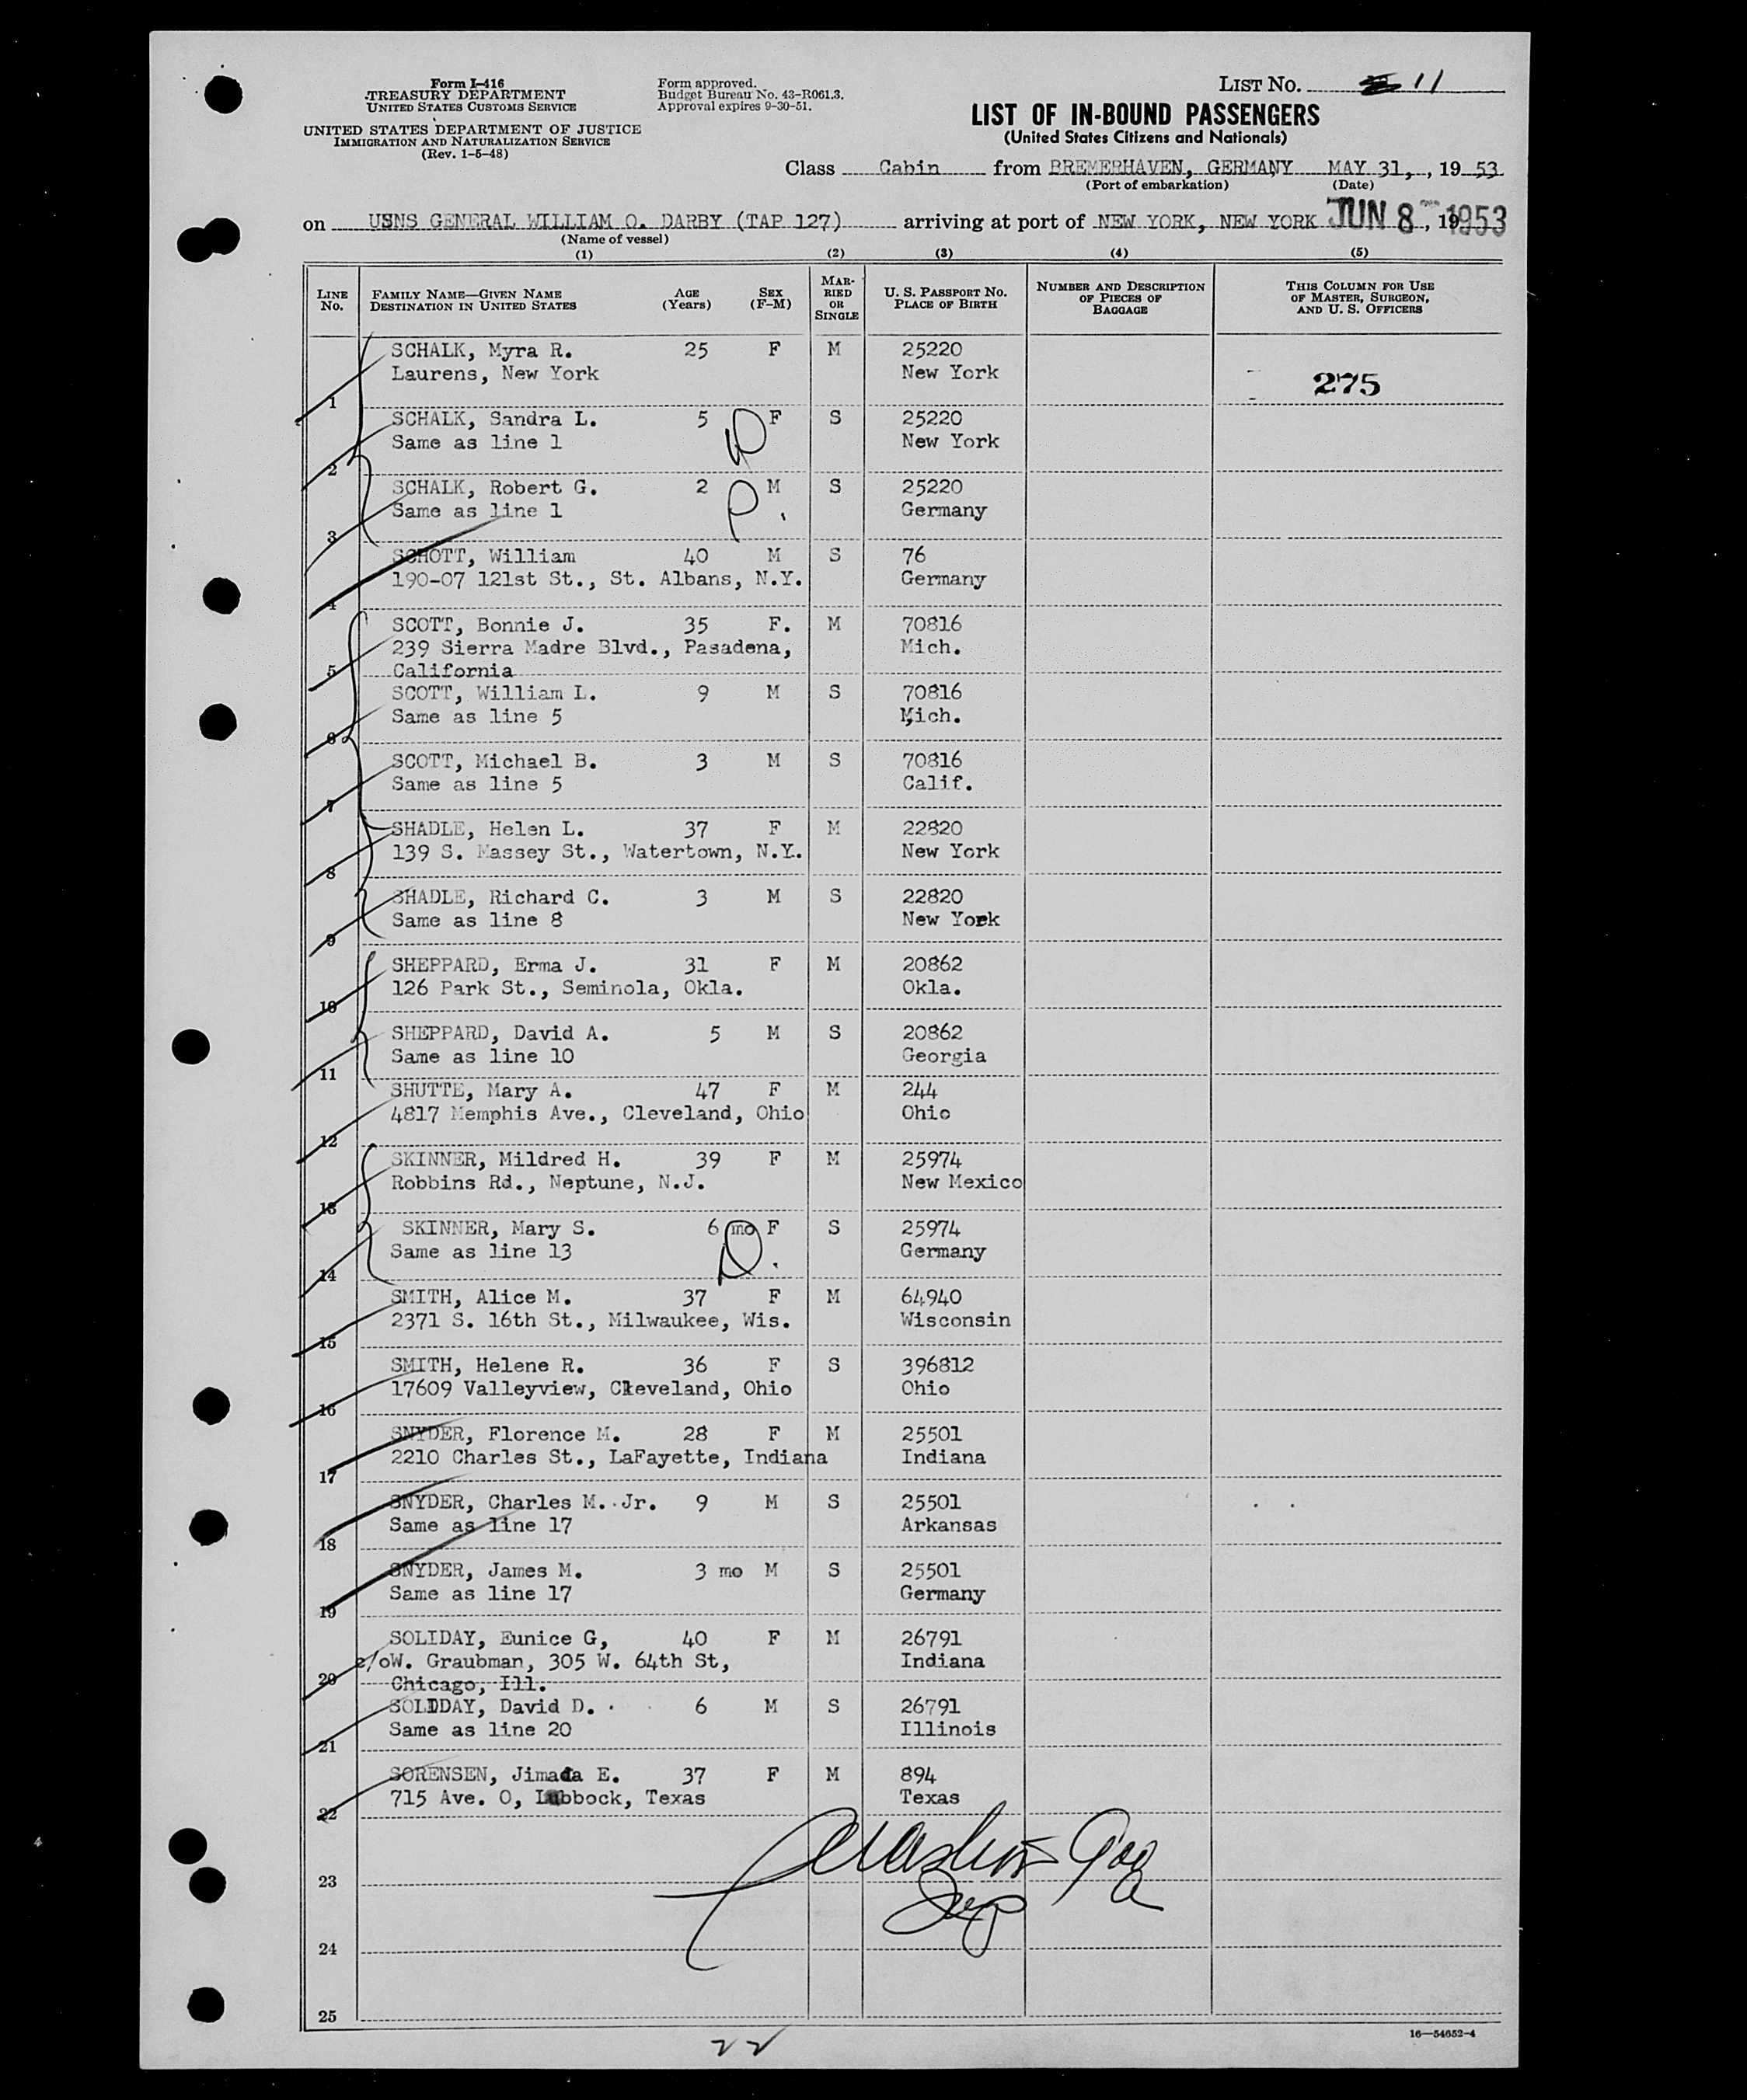 Form I-416
TREASURY DEPARTMENT
UNITED STATES CUSTOMS SERVICE
UNITED STATES DEPARTMENT OF JUSTICE
IMMIGRATION AND NATURALIZATION SERVICE
(Rev. 1-5-48)
Form approved.
Budget Bureau No. 43-R061.3.
Approval expires 9-30-51.
LIST NO. 11
LIST OF IN-BOUND PASSENGERS
(United States Citizens and Nationals)
Class Cabin from BREMERHAVEN, GERMANY MAY 31, , 19 53
(Port of embarkation) (Date)
on USNS GENERAL WILLIAM O. DARBY (TAP 127) arriving at port of NEW YORK, NEW YORK JUN 8 , 19 1953
(Name of vessel)
(1) (2) (3) (4) (5)
LINE No. FAMILY NAME—GIVEN NAME DESTINATION IN UNITED STATES AGE (Years) SEX (F-M) MARRIED OR SINGLE U. S. PASSPORT NO. PLACE OF BIRTH NUMBER AND DESCRIPTION OF PIECES OF BAGGAGE THIS COLUMN FOR USE OF MASTER, SURGEON, AND U. S. OFFICERS
SCHALK, Myra R. 25 F M 25220
Laurens, New York New York 275
1
SCHALK, Sandra L. 5 F S 25220
Same as line 1 New York
2
SCHALK, Robert G. 2 M S 25220
Same as line 1 Germany
3
SCHOTT, William 40 M S 76
190-07 121st St., St. Albans, N.Y. Germany
4
SCOTT, Bonnie J. 35 F. M 70816
239 Sierra Madre Blvd., Pasadena, Mich.
5 California
SCOTT, William L. 9 M S 70816
Same as line 5 Mich.
6
SCOTT, Michael B. 3 M S 70816
Same as line 5 Calif.
7
SHADLE, Helen L. 37 F M 22820
139 S. Massey St., Watertown, N.Y. New York
8
SHADLE, Richard C. 3 M S 22820
Same as line 8 New York
9
SHEPPARD, Erma J. 31 F M 20862
126 Park St., Seminola, Okla. Okla.
10
SHEPPARD, David A. 5 M S 20862
Same as line 10 Georgia
11
SHUTTE, Mary A. 47 F M 244
4817 Memphis Ave., Cleveland, Ohio Ohio
12
SKINNER, Mildred H. 39 F M 25974
Robbins Rd., Neptune, N.J. New Mexico
13
SKINNER, Mary S. 6 mo F S 25974
Same as line 13 Germany
14
SMITH, Alice M. 37 F M 64940
2371 S. 16th St., Milwaukee, Wis. Wisconsin
15
SMITH, Helene R. 36 F S 396812
17609 Valleyview, Cleveland, Ohio Ohio
16
SNYDER, Florence M. 28 F M 25501
2210 Charles St., LaFayette, Indiana Indiana
17
SNYDER, Charles M. Jr. 9 M S 25501
Same as line 17 Arkansas
18
SNYDER, James M. 3 mo M S 25501
Same as line 17 Germany
19
SOLIDAY, Eunice G, 40 F M 26791
c/oW. Graubman, 305 W. 64th St, Indiana
20 Chicago, Ill.
SOLIDAY, David D. 6 M S 26791
Same as line 20 Illinois
21
SORENSEN, Jimada E. 37 F M 894
715 Ave. O, Lubbock, Texas Texas
22
23
24
25
16—54652-4
22